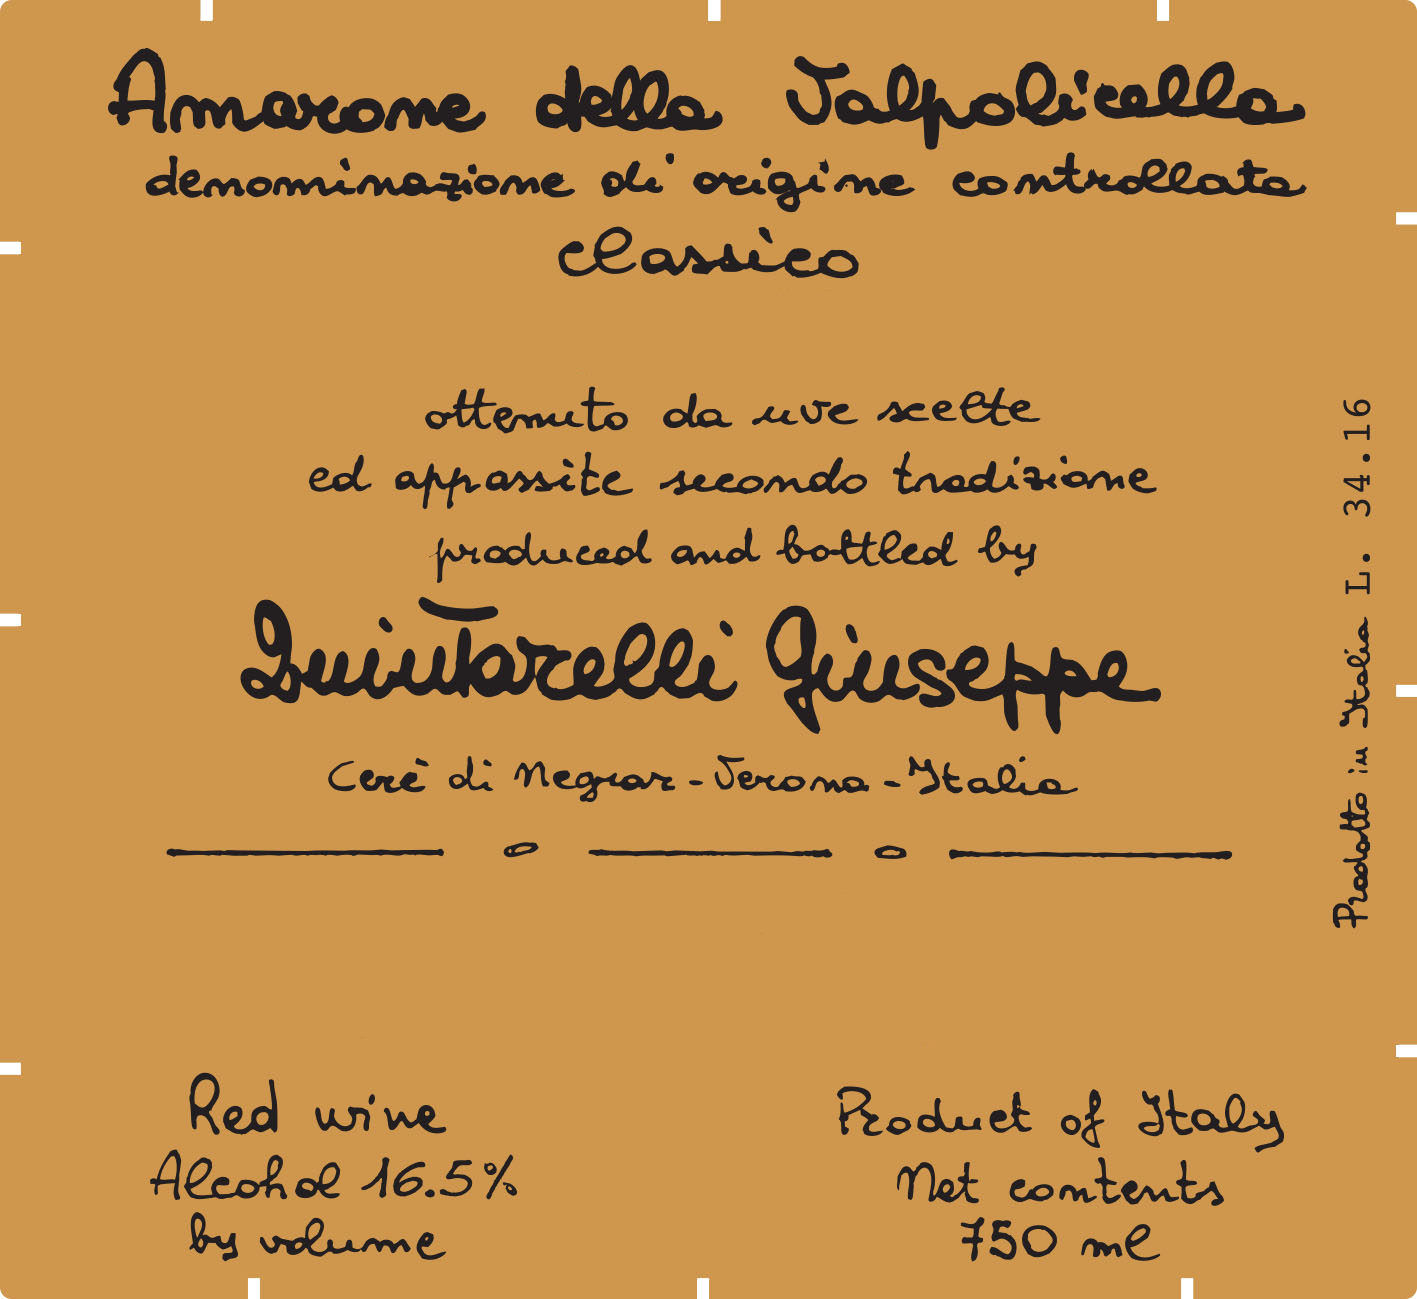 Amarone della Valpolicella
denominazione di origine controllata
classico
ottenuto da uve scelte
ed appassite secondo tradizione
produced and bottled by
Quintarelli Giuseppe
Cerè di Negrar - Verona - Italia
Prodotto in Italia L. 34.16
Red wine
Alcohol 16.5%
by volume
Product of Italy
Net contents
750 ml